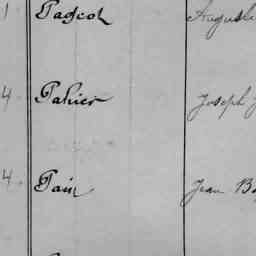 1 Pagcot Augusti
4 Pahier Joseph J
4 Pain Jean Ba